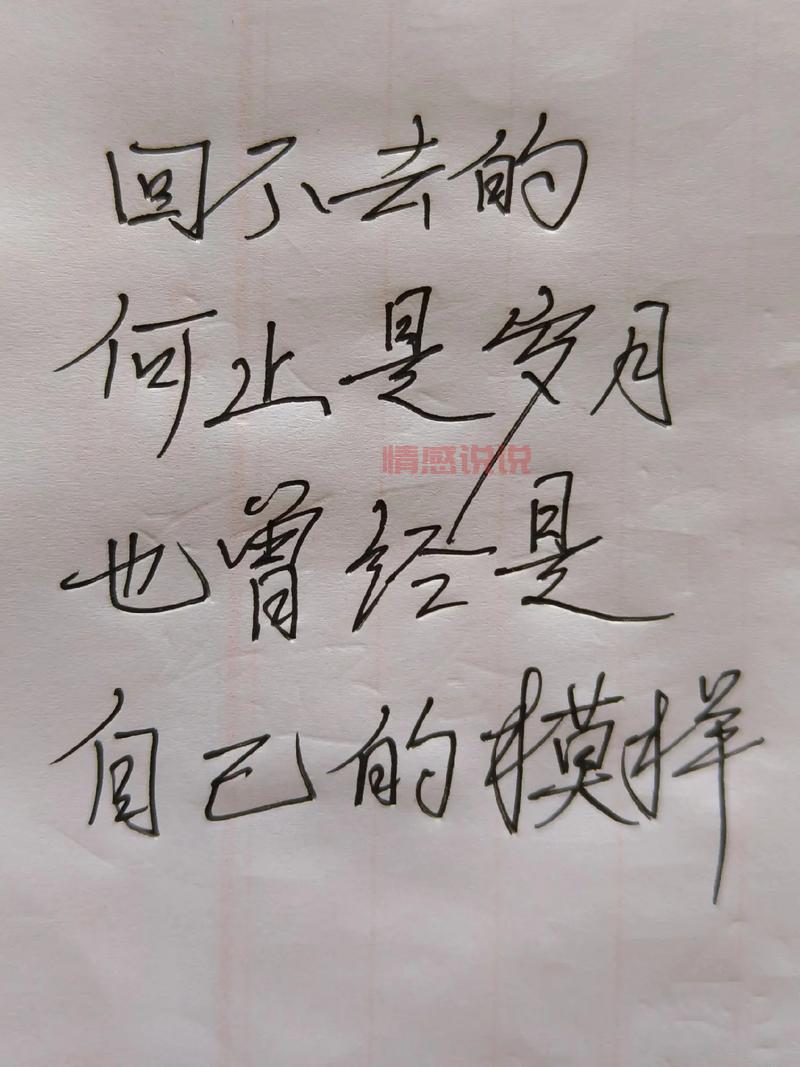 回不去的
何止是岁月
情感说说
也曾经是
自己的模样